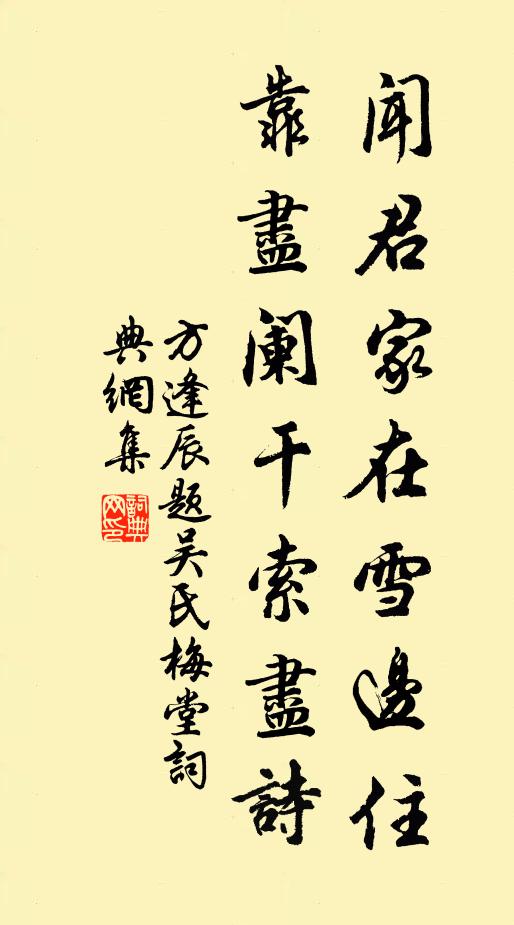 聞君家在雪邊住
靠盡阑干索盡詩
方逢辰题吴氏梅堂詞
典網集
詞典网印